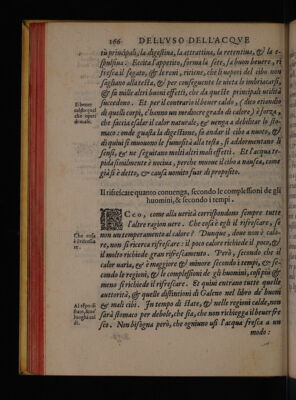 166 DELL'VSO DELL'ACQVE
tù principali, la digestiua, la attrattiua, la retentiua, & la e-
spulsiua: Eccita l'appetito, ferma la sete, fa buon beuere, ri
fresca il fegato, & le reni, ritiene, che li uapori del cibo non
sagliano alla testa, & per conseguente le uieta le imbriacarsi,
& fa mille altri buoni effetti, che da queste principali utilità
succedono. Et per il contrario il beuer caldo, ( dico etiandio
di quelli corpi, c'hanno un mediocre grado di calore) è forza,
che faccia esalar il calor naturale, & uenga à debilitar lo sto-
maco: onde guasta la digestione, fa andar il cibo a nuoto, &
di quiui si muouono le fumosità alla testa, si addormentano li
sensi, & ne seguitano molti altri mali effetti. Et l'acqua te-
pida similmente è nociua, perche muoue il cibo a nausea, come
già si è detto, & causa uomito fuor di proposito.
Il beuer
caldo qual
che operi
di male.
Il rifrescare quanto conuenga, secondo le complessioni de gli
huomini, & secondo i tempi.
Ecco, come alla uerità corrispondono sempre tutte
l'altre ragion uere. Che cosa è egli il rifrescare, se
non un temperamento al calore? Dunque, doue non è calo-
re, non si ricerca rifrescare: il poco calore richiede il poco, &
il molto richiede gran rifrescamento. Però, secondo che il
calor uaria, & è maggiore & minore secondo i tempi, & se-
condo le regioni, & le complessioni de gli huomini, così più &
meno si richiede il rifrescare. Et quiui entrano tutte quelle
auttorità, & quelle distintioni di Galeno nel libro de buoni
& mali cibi. In tempo di state, & nelle regioni calde, non
sarà stomaco per debole, che sia, che non richiegga il beuer fre
sco. Non bisogna però, che ogniuno usi l'acqua fresca a un
modo:
Che cosa
è rifresca
re.